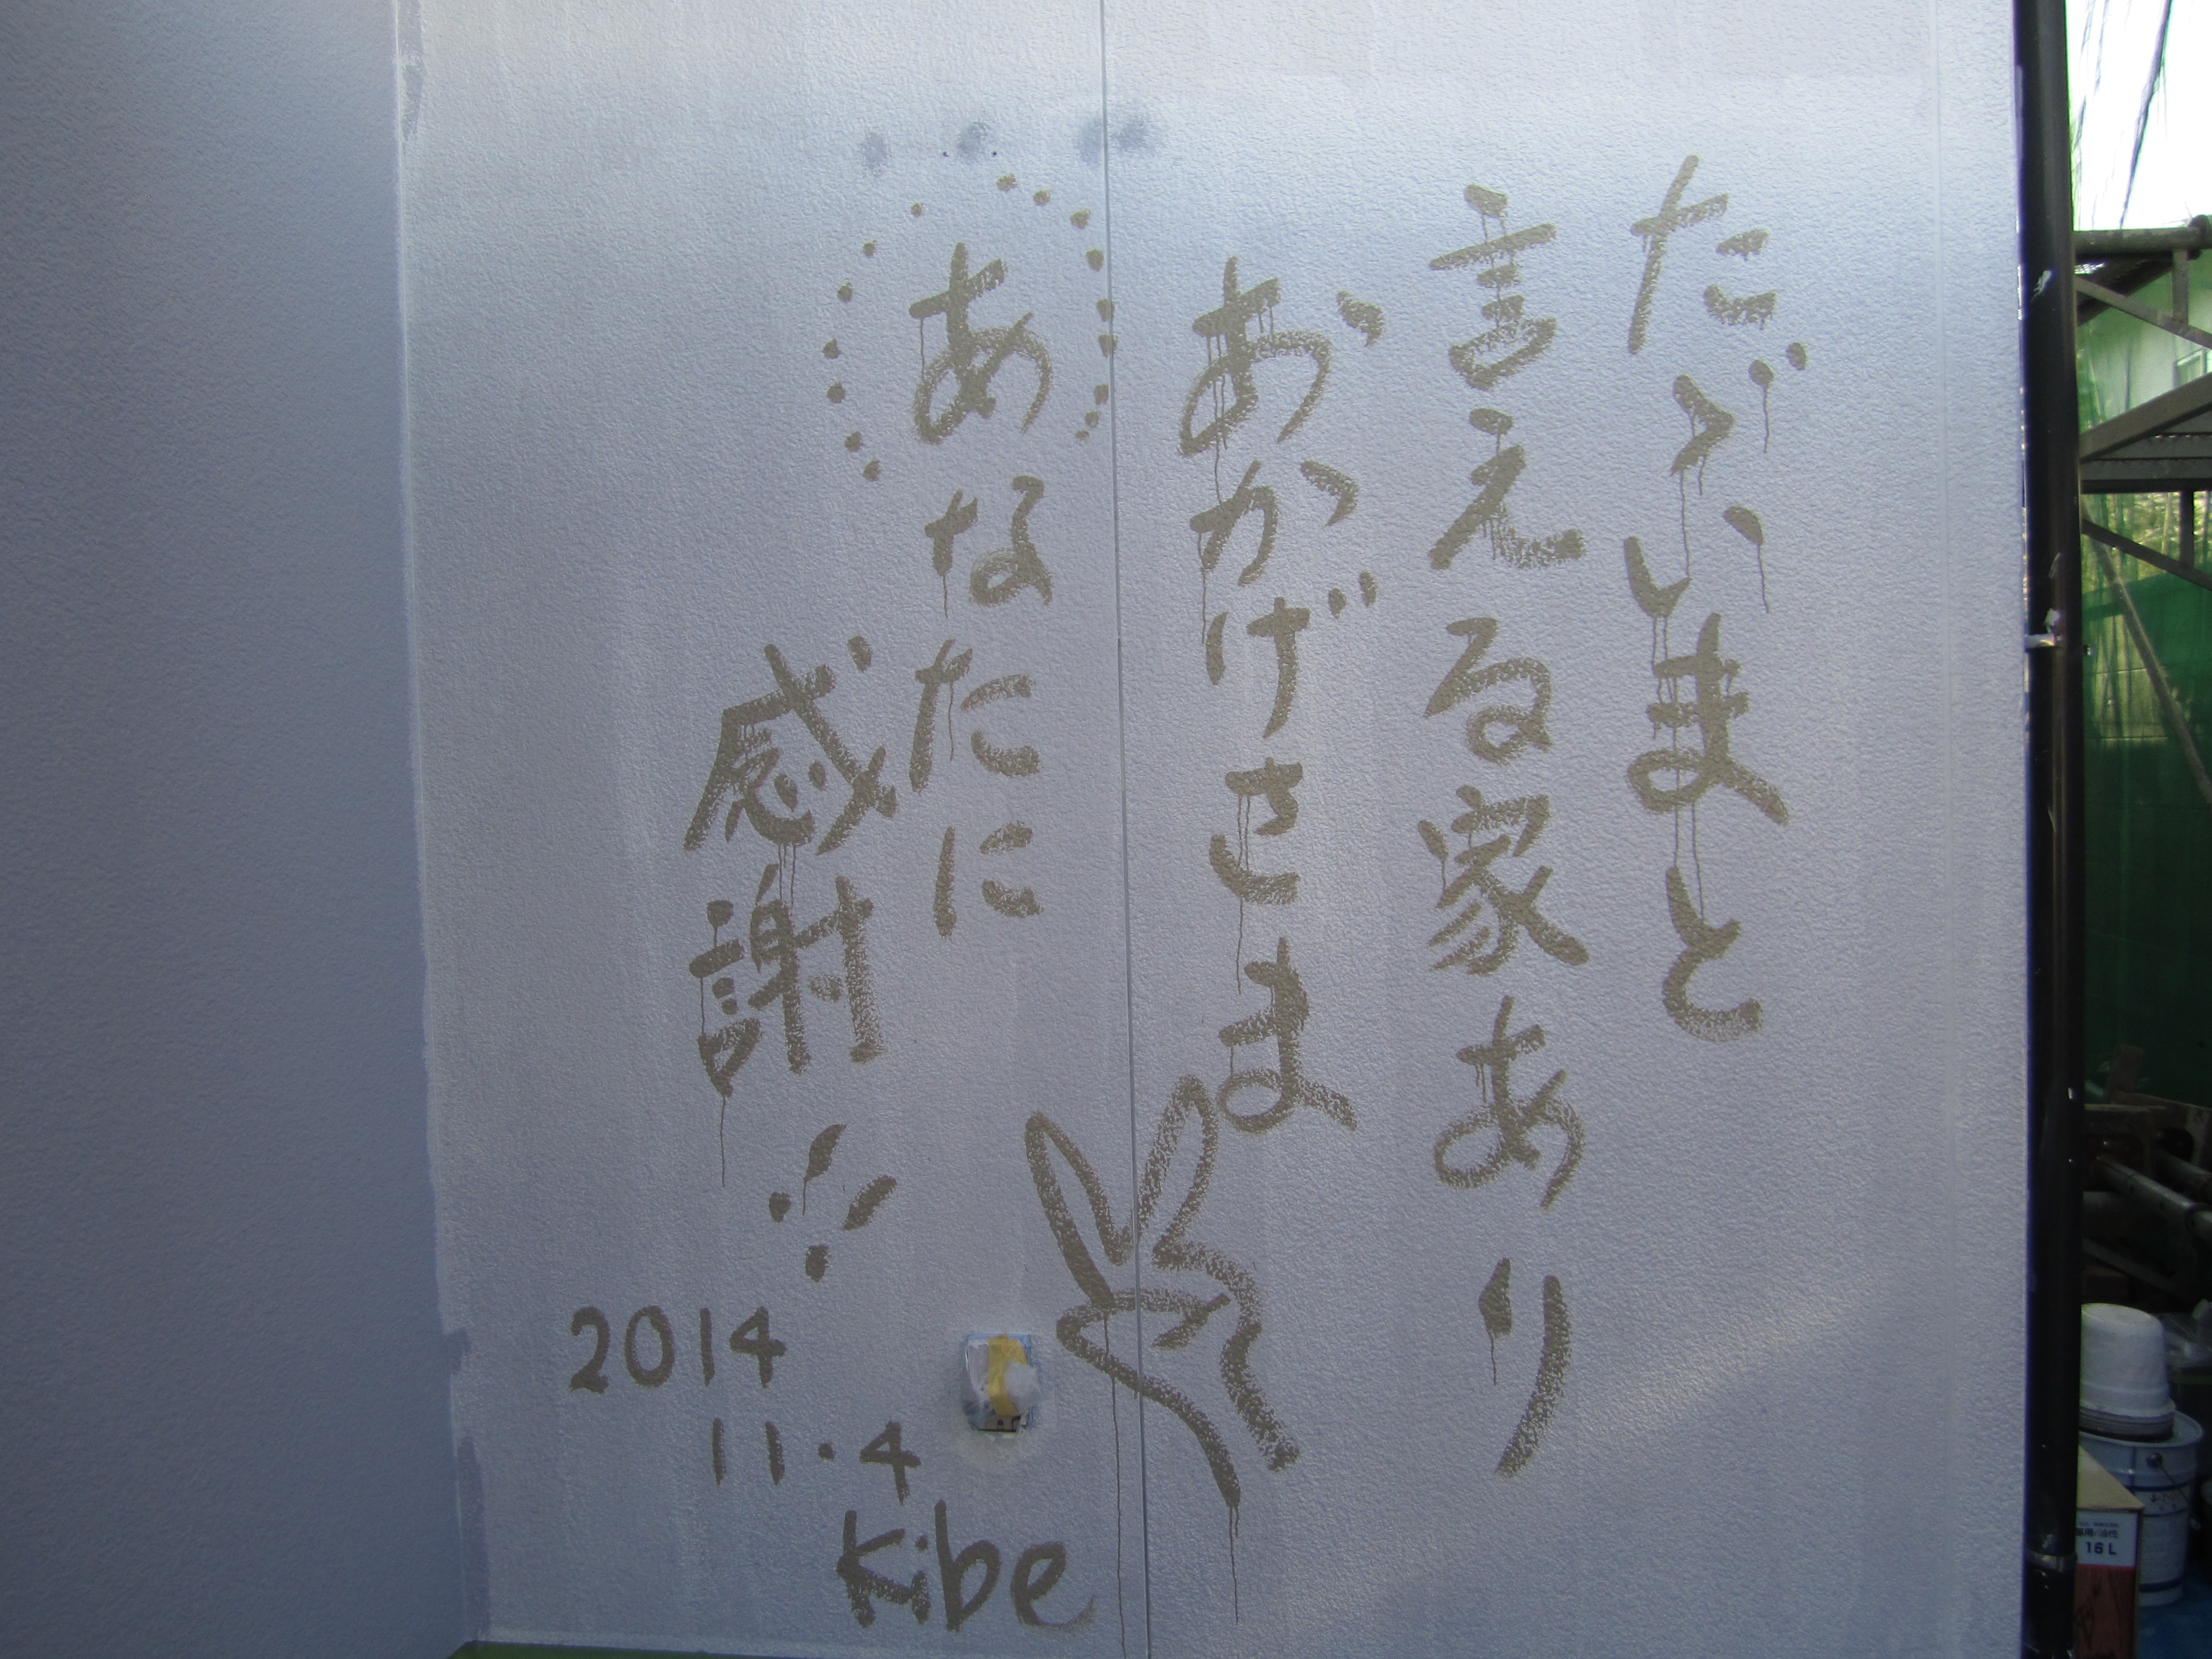 ただいまと
言える家あり
おかげさま
あなたに
感謝
2014
11.4
Kibe
16L